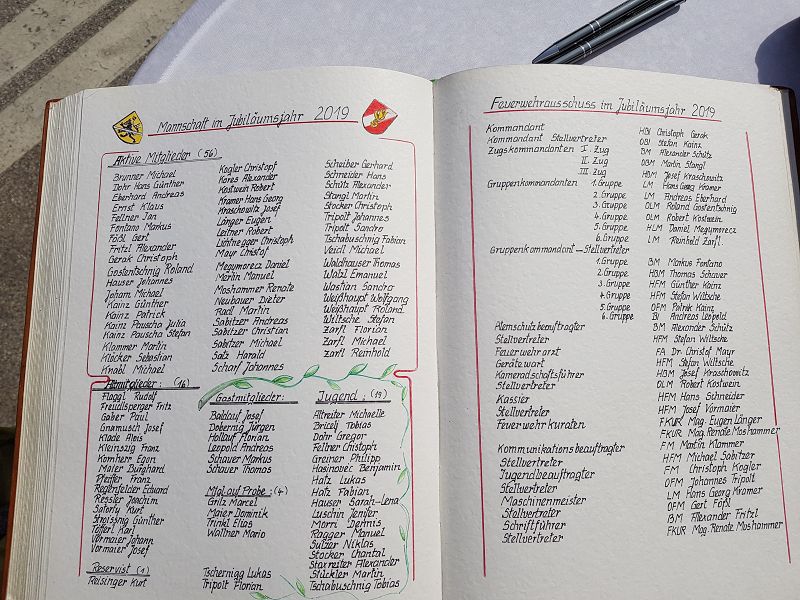 Mannschaft im Jubiläumsjahr 2019
Aktive Mitglieder (56)
Brunner Michael
Dohr Hans Günther
Eberhard Andreas
Ernst Klaus
Fellner Jan
Fontano Markus
Fößl Gert
Fritzl Alexander
Gerak Christoph
Gostentschnig Roland
Hauser Johannes
Joham Michael
Kainz Günther
Kainz Patrick
Kainz Pauscha Julia
Kainz Pauscha Stefan
Klammer Martin
Klocker Sebastian
Knabl Michael
Kogler Christopf
Kores Alexander
Kostwein Robert
Kramer Hans Georg
Kraschowitz Josef
Länger Eugen
Leitner Robert
Liuthnegger Christoph
Mayr Christof
Megymorecz Daniel
Merlin Manuel
Moshammer Renate
Neubauer Dieter
Radl Martin
Sabitzer Andreas
Sabitzer Christian
Sabitzer Michael
Salz Harald
Scharf Johannes
Scheiber Gerhard
Schneider Hans
Schütz Alexander
Stangl Martin
Stocker Christoph
Tripolt Johannes
Tripolt Sandro
Tschabuschnig Fabian
Veidl Michael
Waldhauser Thomas
Watzl Emanuel
Wastian Sandro
Weißhaupt Wolfgang
Weißhaupt Roland
Wiltsche Stefan
Zarfl Florian
Zarfl Michael
Zarfl Reinhold
Altmitglieder: (16)
Flaggl Rudolf
Freudlsperger Fritz
Gaber Paul
Gnamusch Josef
Klade Alois
Kleinszig Franz
Kornherr Egon
Maier Burghard
Pfeifer Franz
Regenfelder Eduard
Ressler Joachim
Satorty Kurt
Stroissnig Günther
Tefferl Karl
Vormaier Johann
Vormaier Josef
Reservist (1)
Reisinger Kurt
Gastmitglieder:
Baldauf Josef
Dobernig Jürgen
Hollauf Florian
Leopold Andreas
Schauer Markus
Schauer Thomas
Mtgl. auf Probe: (4)
Gritz Marcel
Maier Dominik
Trinkl Elias
Wallner Mario
Tschernigg Lukas
Tripolt Florian
Jugend: (19)
Altreiter Michaelle
Bricelj Tobias
Dohr Gregor
Fellner Christoph
Greiner Philipp
Hasinovec Benjamin
Hatz Lukas
Hatz Fabian
Hauser Sarah-Lena
Luschin Jenifer
Morri Dennis
Ragger Manuel
Sulzer Niklas
Stocker Chantal
Starreiter Alexander
Stückler Martin
Tschabuschnig Tobias
Feuerwehrausschuss im Jubiläumsjahr 2019
Kommandant HBI Christoph Gerak
Kommandant Stellvertreter OBI Stefan Kainz
Zugskommandanten I. Zug BM Alexander Schütz
II. Zug OBM Martin Stangl
III Zug HBM Josef Kraschowitz
Gruppenkommandanten 1. Gruppe LM Hans Georg Kramer
2. Gruppe LM Andreas Eberhard
3. Gruppe OLM Roland Gostentschnig
4. Gruppe OLM Robert Kostwein
5. Gruppe HLM Daniel Megymorecz
6. Gruppe LM Reinhold Zarfl.
Gruppenkommandant-Stellvertreter
1. Gruppe BM Markus Fontano
2. Gruppe HBM Thomas Schauer
3. Gruppe HFM Günther Kainz
4. Gruppe HFM Stefan Wiltsche
5. Gruppe OFM Patrik Kainz
6. Gruppe BI Andreas Leopold
Atemschutzbeauftragter BM Alexander Schütz
Stellvertreter HFM Stefan Wiltsche
Feuerwehrarzt FA Dr. Christof Mayr
Gerätewart HFM Stefan Wiltsche
Kameradschaftsführer HBM Josef Kraschowitz
Stellvertreter OLM Robert Kostwein
Kassier HFM Hans Schneider
Stellvertreter HFM Josef Vormaier
Feuerwehrkuraten FKUR Mag. Eugen Länger
FKUR Mag. Renate Moshammer
Kommunikationsbeauftragter FM Martin Klammer
Stellvertreter HFM Michael Sabitzer
Jugendbeauftragter FM Christoph Kogler
Stellvertreter OFM Johannes Tripolt
Maschinenmeister LM Hans Georg Kramer
Stellvertreter OFM Gert Fößl
Schriftführer BM Alexander Fritzl
Stellvertreter FKUR Mag. Renate Moshammer